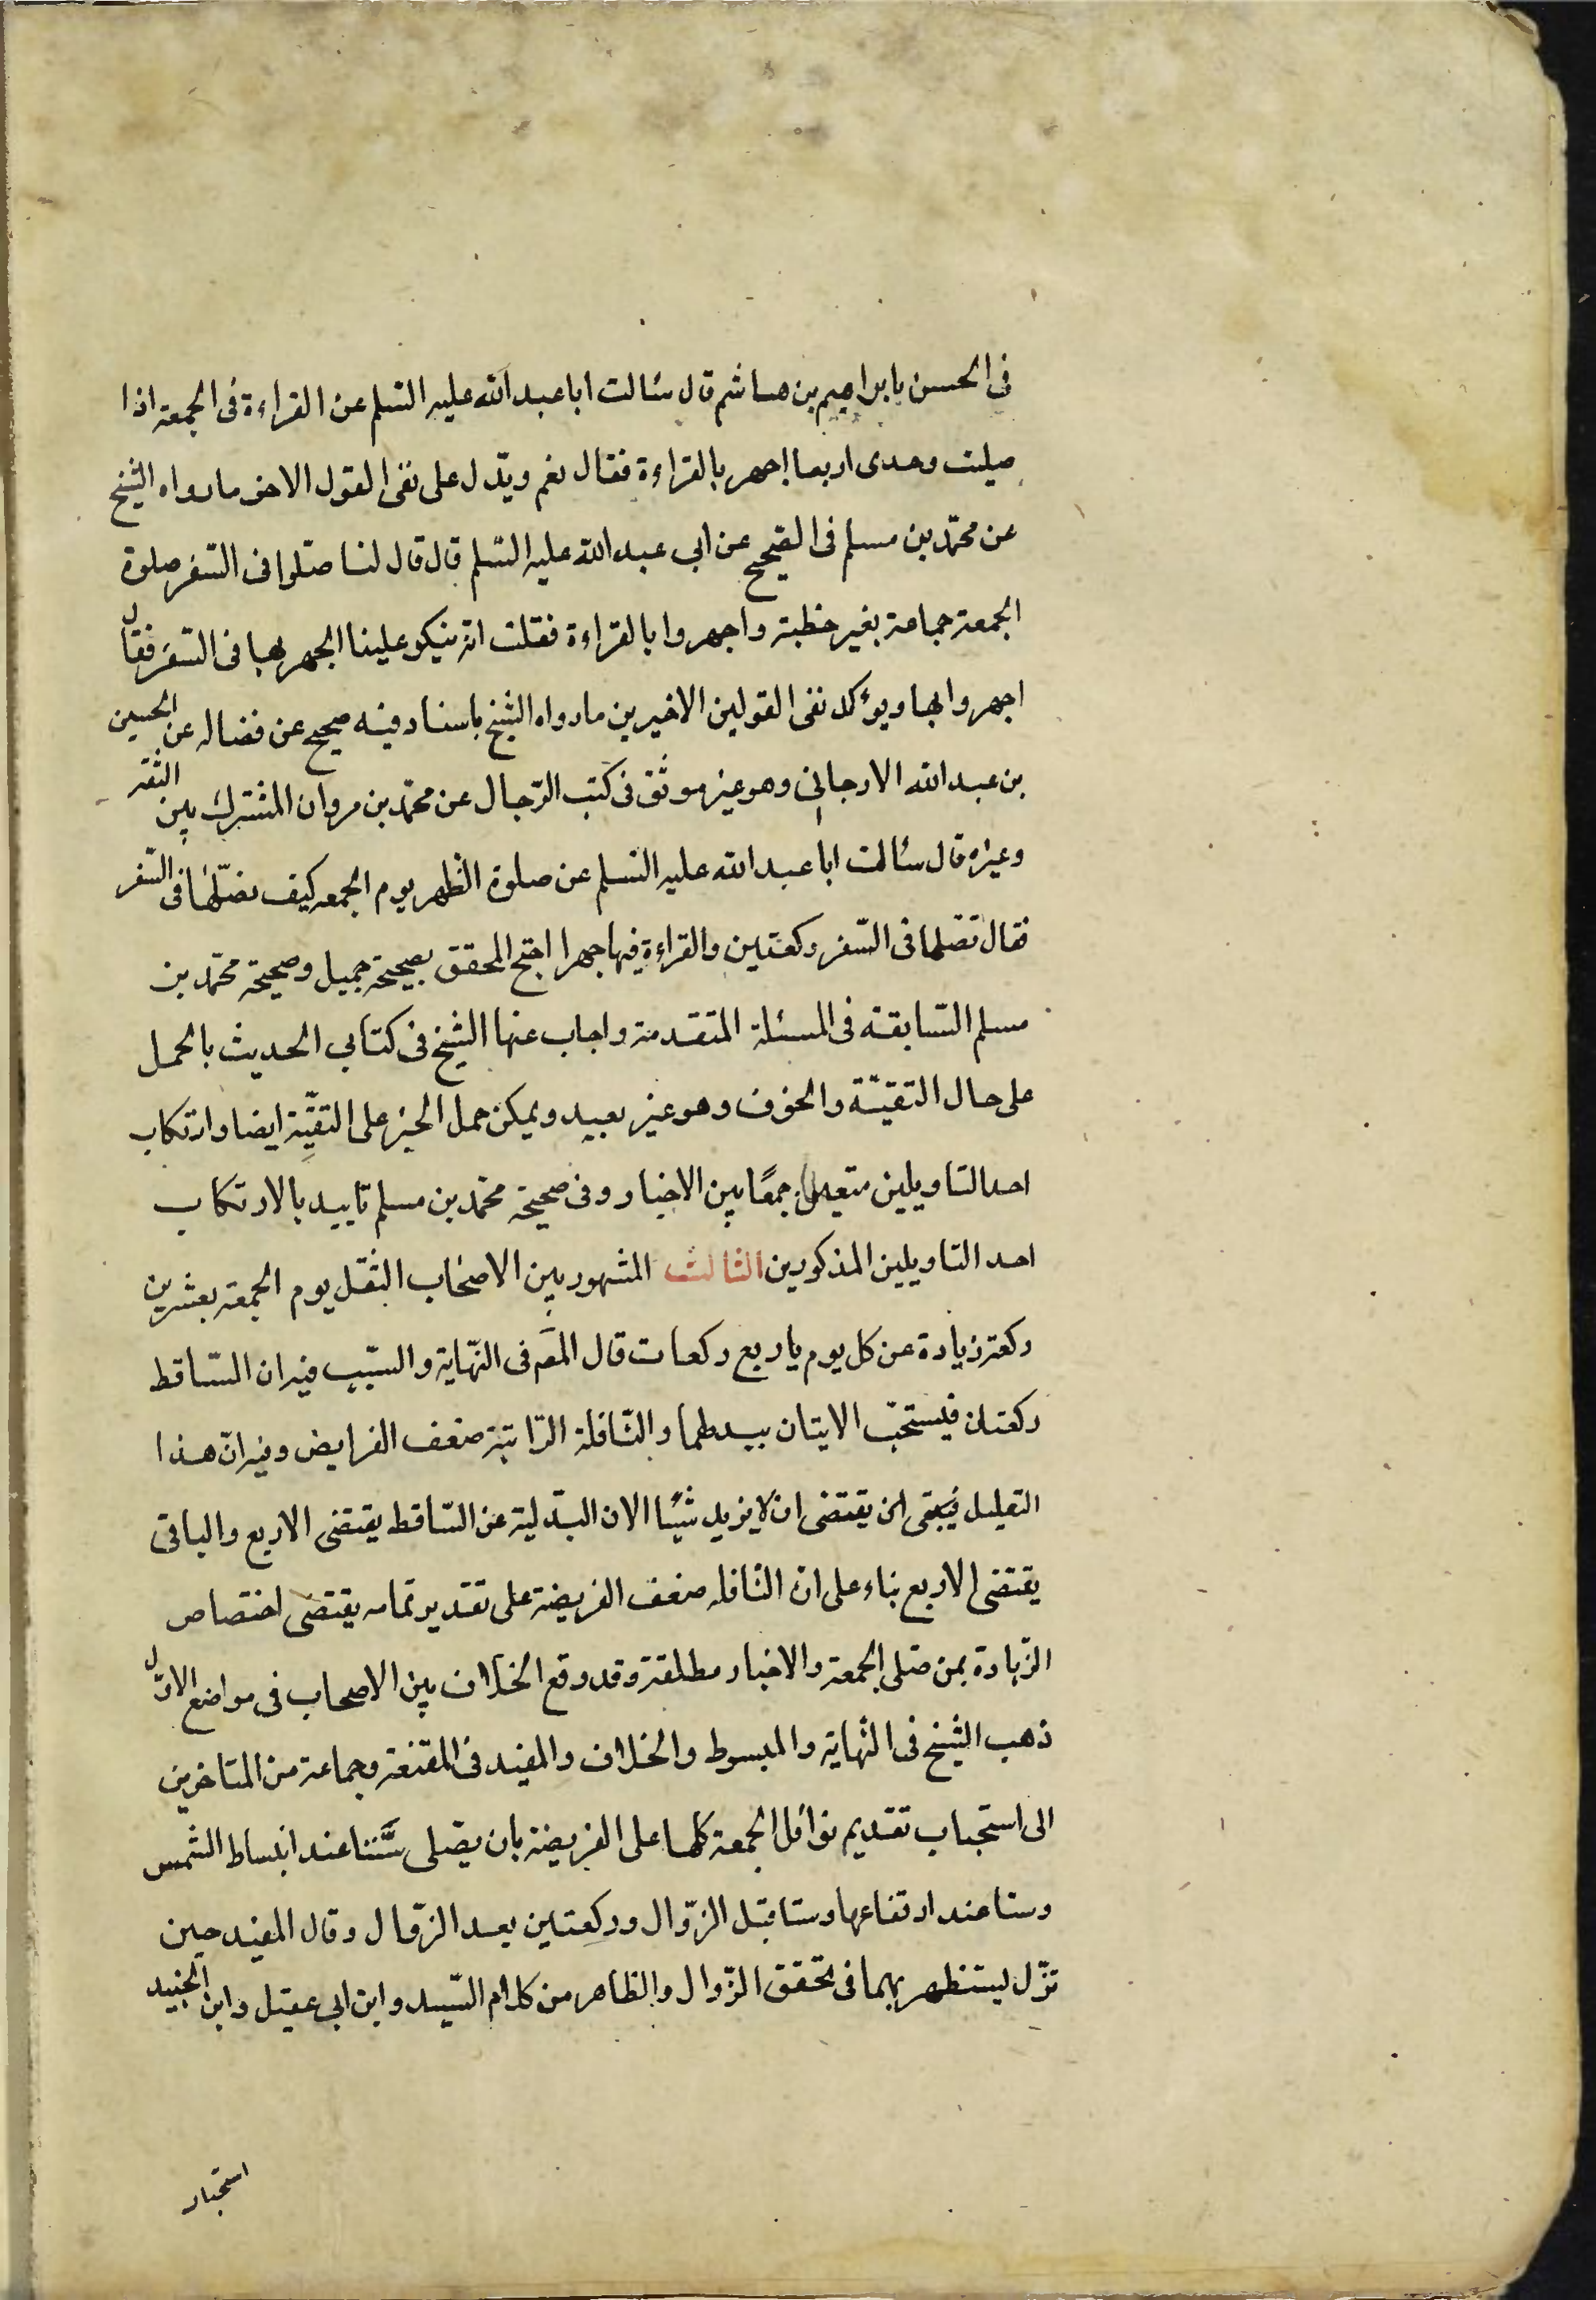 فى الحسن بابراهيم بن هاشم قال سئالت ابا عبد الله عليه السلم عن القراءة فى الجمعة اذا
صليت وحدى اربعا اجهر بالقراءة فقال نعم ويدل على نفى القول الاخر ما رواه الشيخ
عن محمّد بن مسلم فى الصّحيح عن ابى عبد الله عليه السّلم قال قال لنا صلّوا فى السّفر صلوة
الجمعة جماعة بغير خطبة واجهروا بالقراءة فقلت انه ينكر علينا الجهر بها فى السّفر فقال
اجهروا بها ويؤكد نفى القولين الاخيرين ما رواه الشيخ باسناد فيه صحيح عن فضاله عن الحسين
بن عبد الله الارجانى وهو غير موثق فى كتب الرّجال عن محمّد بن مروان المشترك بين الثقة
وغيره قال سئالت ابا عبد الله عليه السلم عن صلوة الظهر يوم الجمعه كيف نصلّيها فى السّفر
فقال تصلها فى السّفر ركعتين والقراءة فيها جهرا احتج المحقق بصحيحة جميل وصحيحة محمّد بن
مسلم السّابقة فى المسئلة المتقدمة واجاب عنها الشيخ فى كتابى الحديث بالحمل
على حال التقيّة والخوف وهو غير بعيد ويمكن حمل الخبر على التقيّة ايضا وارتكاب
احد التاويلين متعين جمعًا بين الاخبار وفى صحيحة محمّد بن مسلم تاييد بالارتكاب
احد التاويلين المذكورين الثالث المشهور بين الاصحاب التنفّل يوم الجمعة بعشرين
ركعة زيادة عن كل يوم باربع ركعات قال المصَ فى النّهاية والسّبب فيه ان السّاقط
ركعتان فيستحبّ الايتان ببدلهما والنّافلة الرّاتبة ضعف الفرايض وفيه انّ هذا
التعليل يقتضى ان لا نزيد شيئا الان البدلية عن السّاقط يقتضى الاربع والباقى
يقتضى الاربع بناء على ان النّافله ضعف الفريضة على تقدير تمامه يقتضى اختصاص
الزّيادة بمن صلى الجمعة والاخبار مطلقة وقد وقع الخلاف بين الاصحاب فى مواضع الاوّل
ذهب الشيخ فى النّهاية والمبسوط والخلاف والمفيد فى المقنعة وجماعة من المتاخرين
الى استحباب تقديم نوافل الجمعة كلها على الفريضة بان يصّلى ستّا عند انبساط الشمس
وستا عند ارتفاعها وستا قبل الزوّال وركعتين بعد الزوّال وقال المفيد حين
تزّل ليستظهر بهما فى تحقق الزّوال والظاهر من كلام السّيد وابن ابى عقيل وابن الجنيد
استحباب